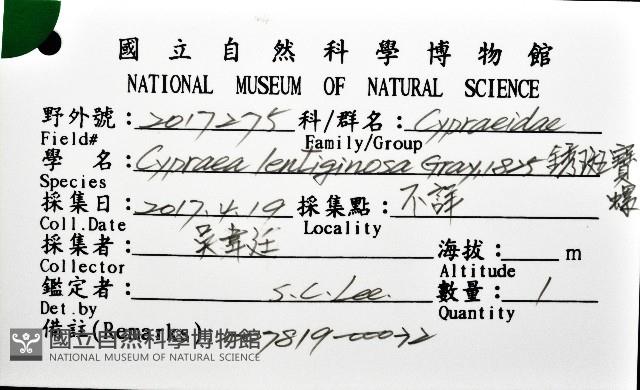 國立自然科學博物館
NATIONAL MUSEUM OF NATURAL SCIENCE
野外號：2017275 科/群名：Cypraeidae
Field# Family/Group
學 名：Cypraea lentiginosa Gray, 1825 銹斑寶螺
Species
採集日：2017.4.19 採集點：不詳
Coll.Date Locality
採集者：吳韋廷 海拔： m
Collector Altitude
鑑定者：S.C. Lee. 數量：1
Det.by Quantity
備註(Remarks) 7819-00072
國立自然科學博物館
NATIONAL MUSEUM OF NATURAL SCIENCE